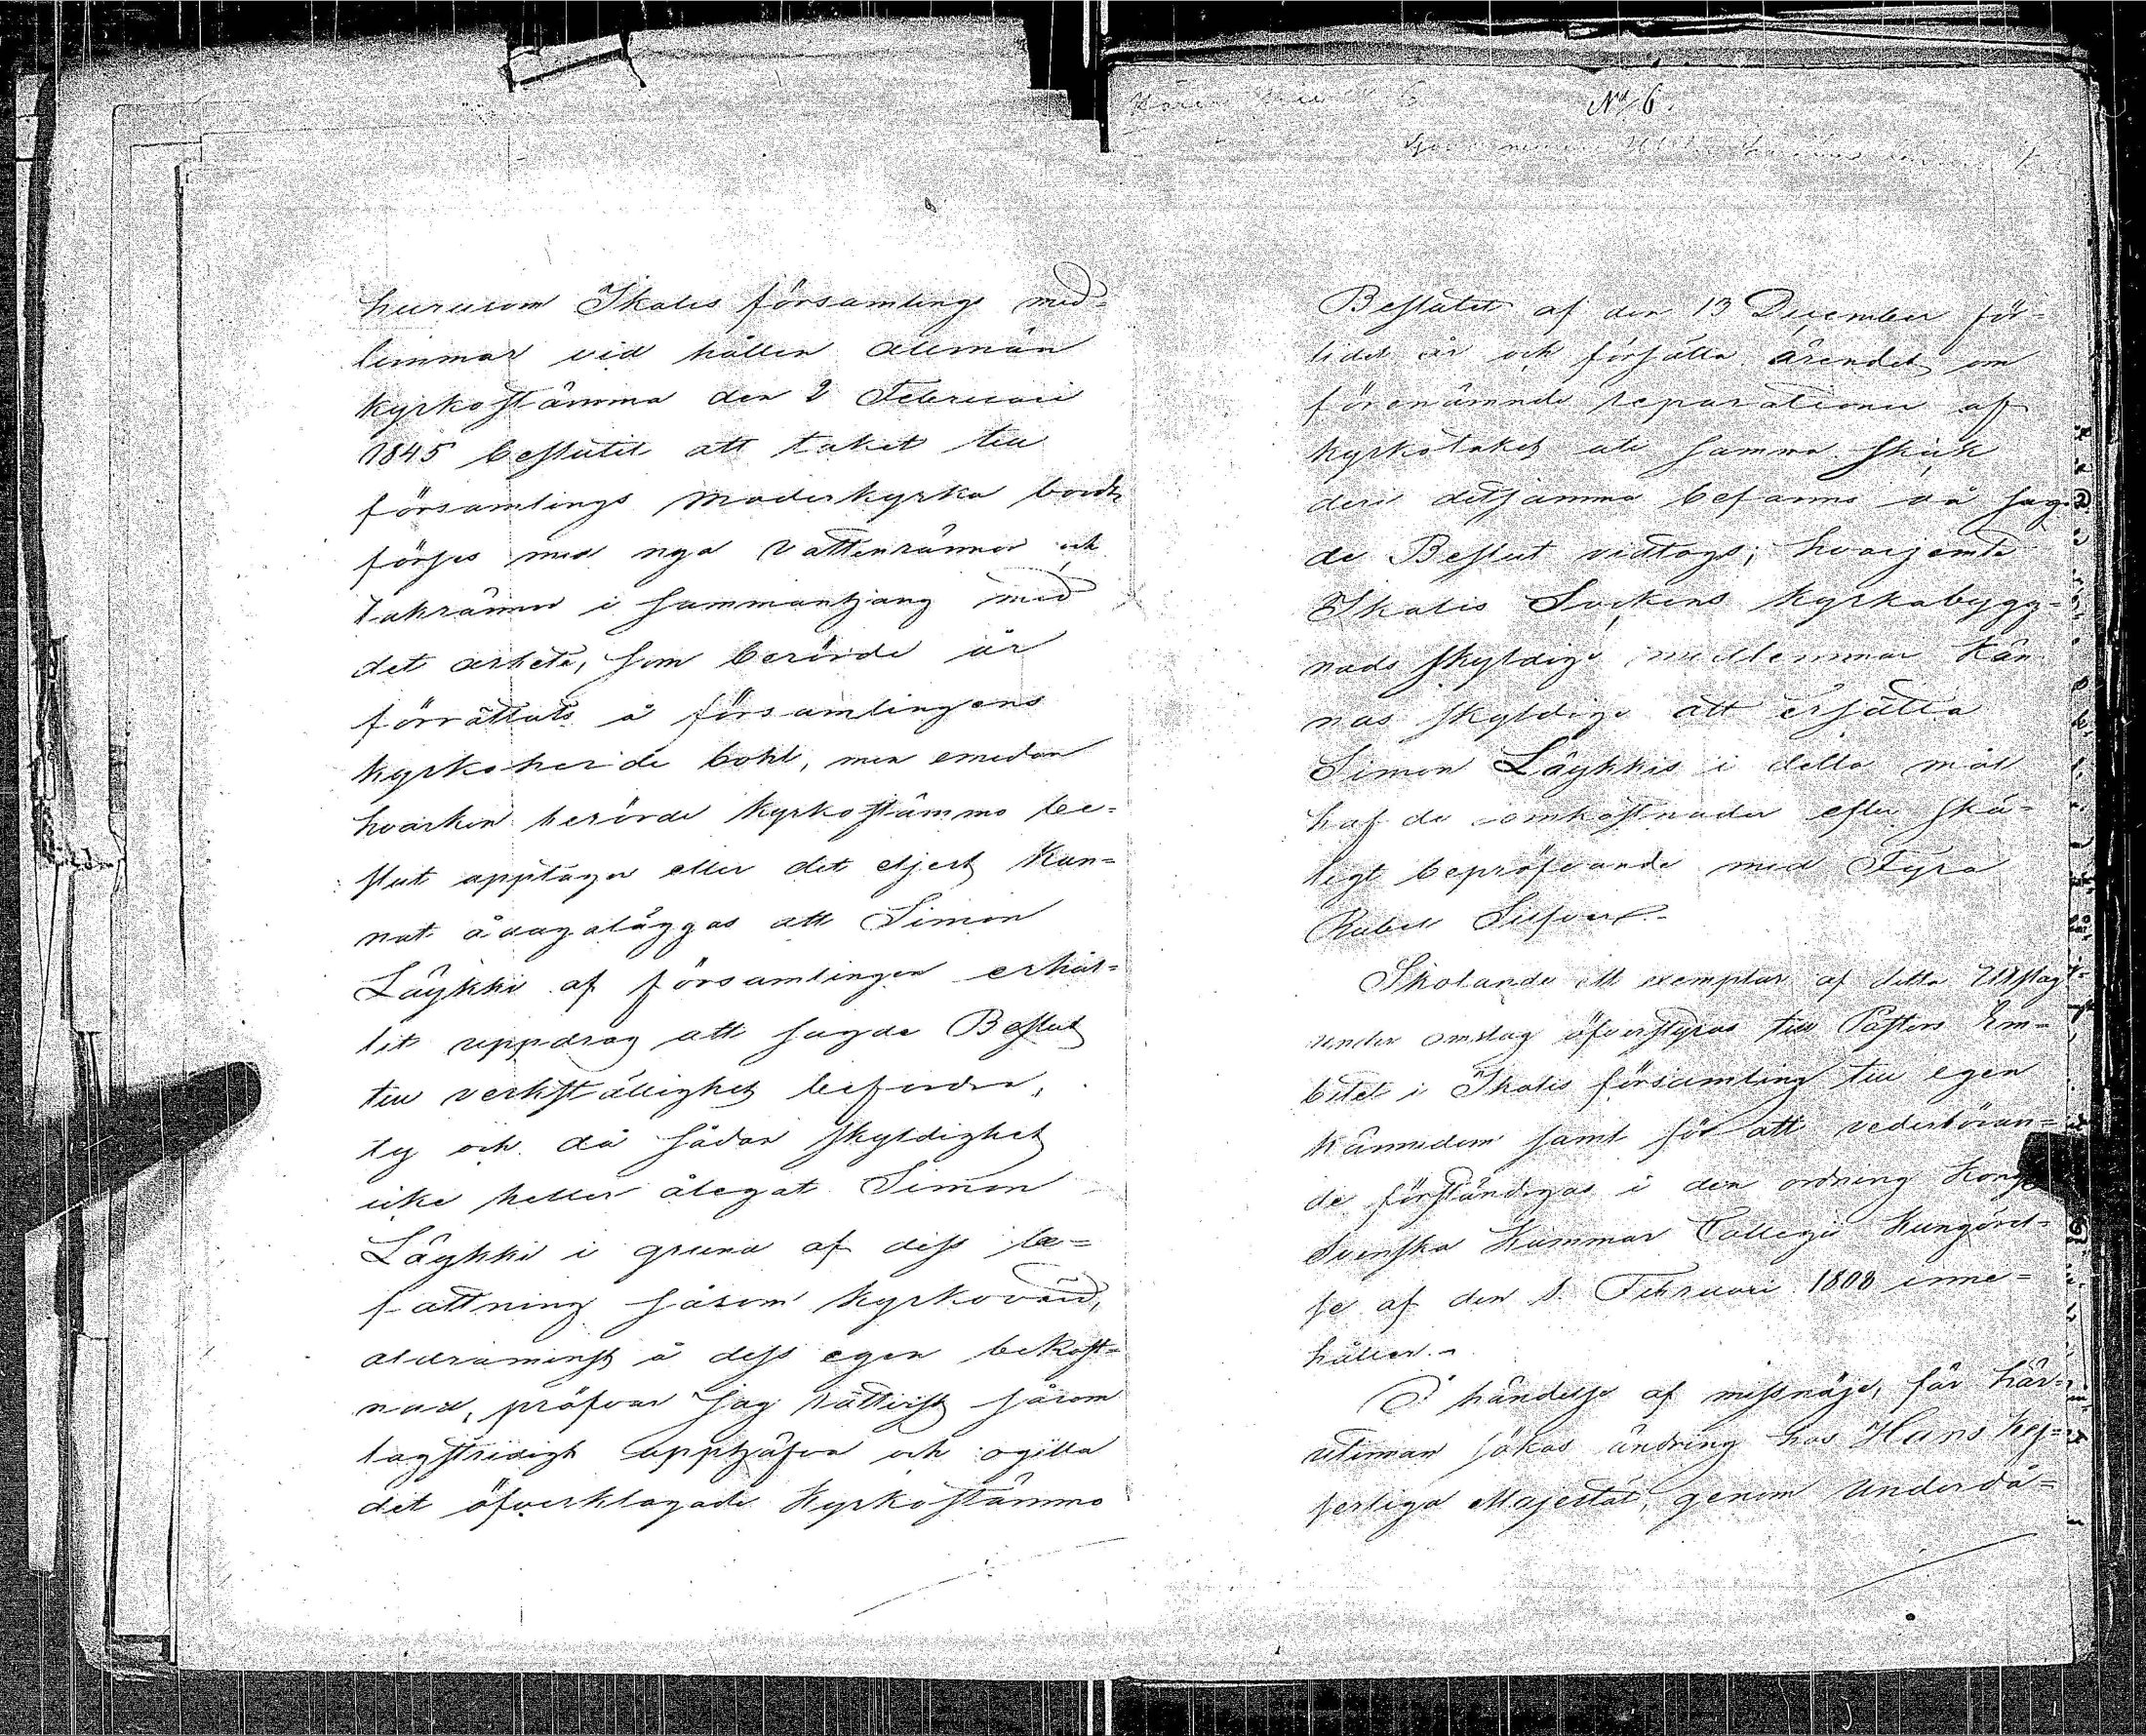 hurusom Ikalis församlings med-
lemmar vid hållen allmän
kyrkostämma den 2 Februari
1845 beslutit att taket till
församlings moderkyrka borde
förses med nya vattenrännor och
takrännor i sammanhang med
det arbete, som berörde år
förrättats å församlingens
kyrkoherde bohl, men emedan
hvarken berörde kyrkostämmo be-
slut upptager eller det eljest kun-
nat ådagaläggas att Simon
Läykki af församlingen erhål-
lit uppdrag att sagde Beslut
till verkställighet befordra,
ty och då sådan skyldighet
icke heller ålegat Simon
Läykki i grund af dess be-
fattning såsom kyrkovärd,
aldraminst å dess egen bekost-
nad, pröfvar Jag rättvist såsom
lagstridigt upphäfva och ogilla
det öfverklagade Kyrkostämmo
N:o 6.
Beslutet af den 13 December för-
lidet år och försätta ärendet om
förenämnde reparationer af
kyrkotaket uti samma skick
deri detsamma befanns då sag-
de Beslut vidtogs; hvarjemte
Ikalis Sockens kyrkobygg-
nads skyldige medlemmar kän-
nas skyldige att ersätta
Simon Läykkis i detta mål
hafde omkostnader efter skä-
ligt bepröfvande med Fyra
Rubel Silfver.-
Skolande ett exemplar af detta Utslag
under omslag öfverstyras till Pastors Em-
betet i Ikalis församling till egen
kännedom samt för att vederböran-
de förständigas i den ordning Kongl
Svenska Kammar Collegii Kungörel-
se af den 8. Februari 1808 inne-
håller.-
I händelse af missnöje, får här-
utinnan sökas ändring hos Hans Kej-
serliga Majestät, genom underdå-